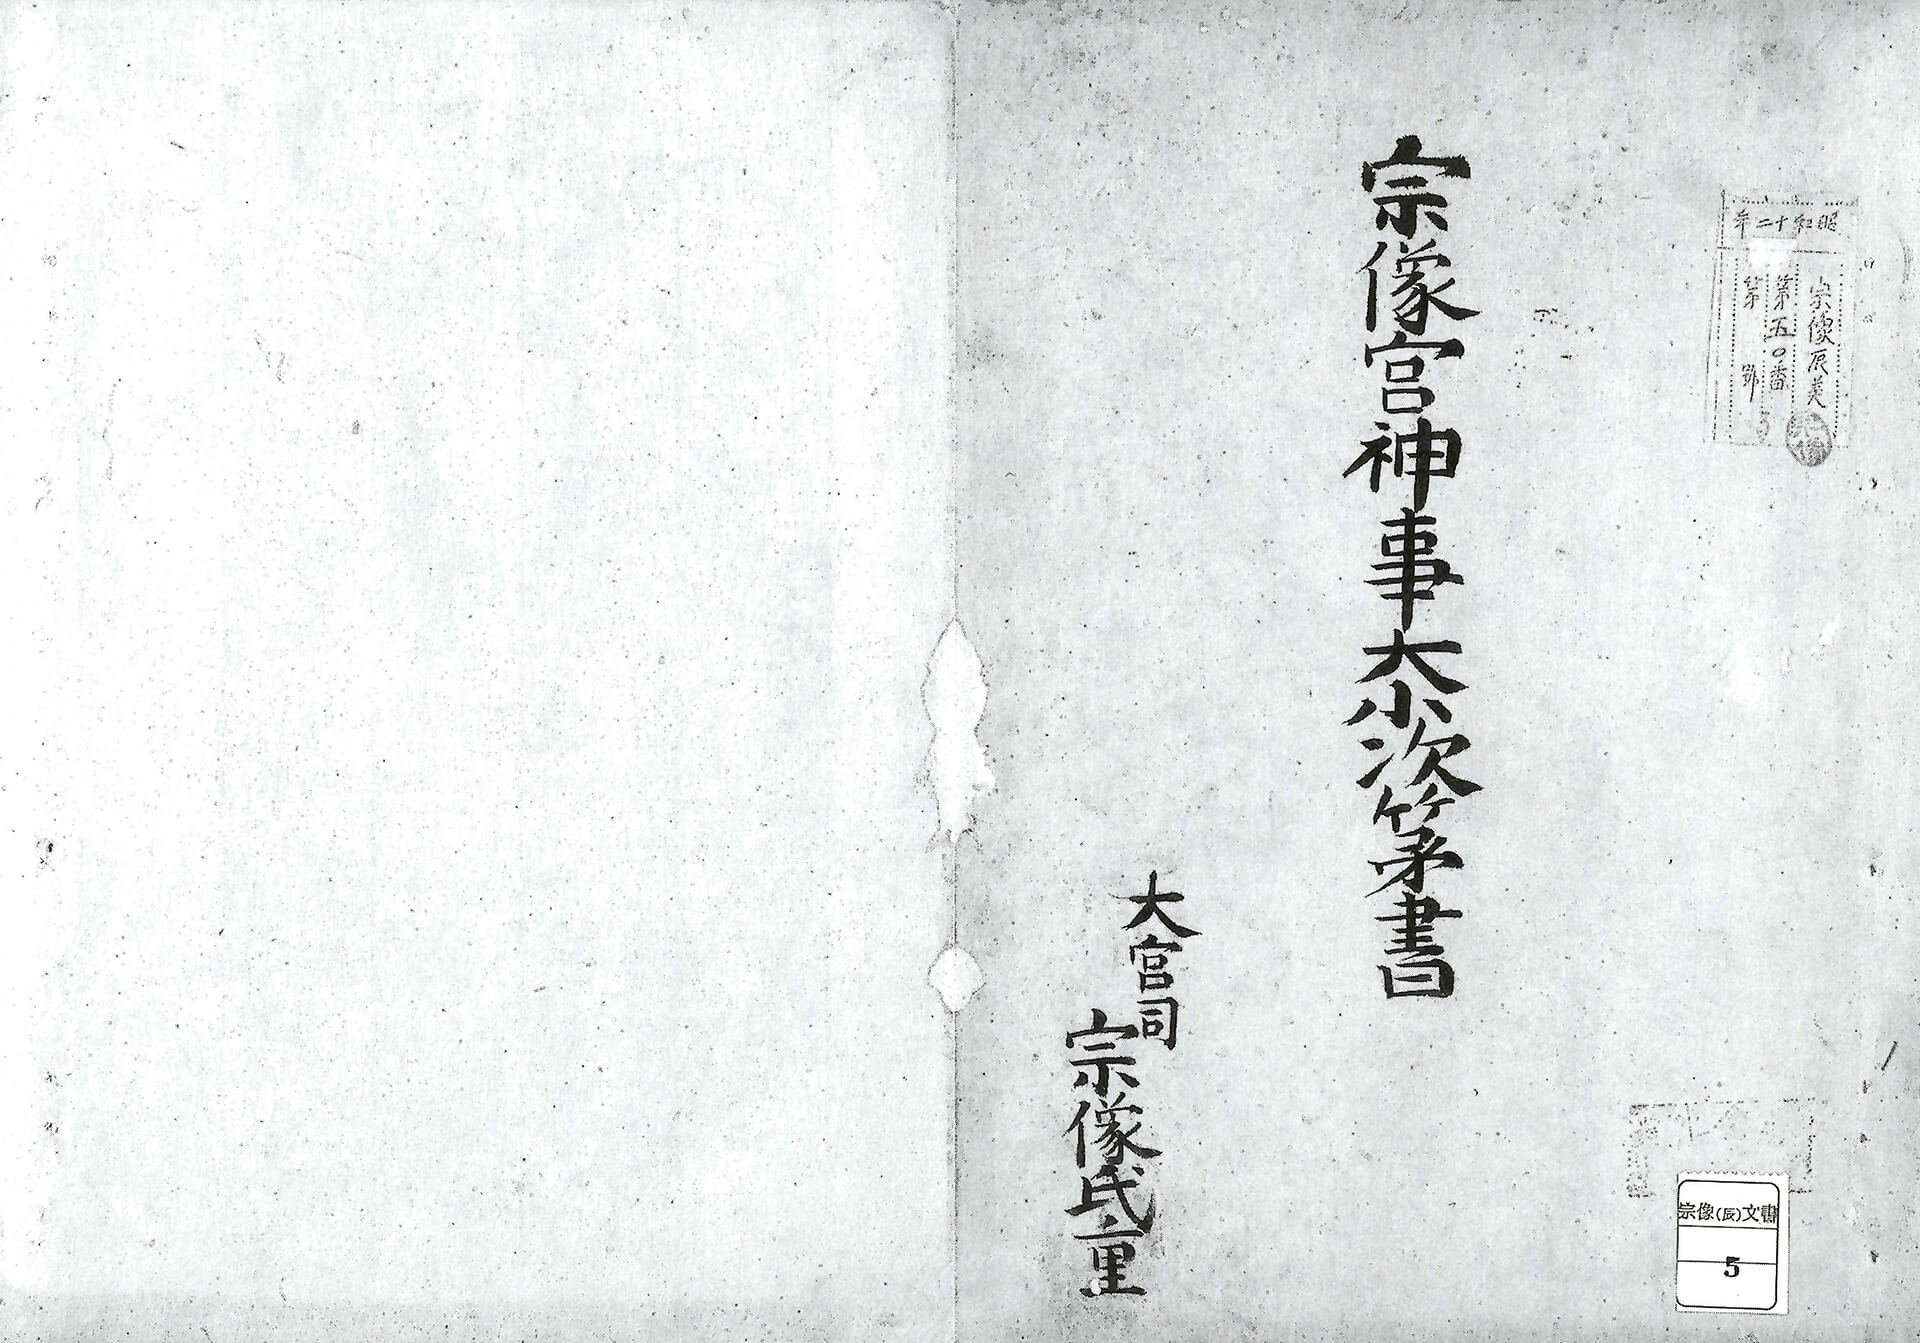 昭和十二年
宗像辰美
第五〇番
第 號
宗像宮神事大小次第書
大宮司
宗像氏重
宗像(辰)文書
5